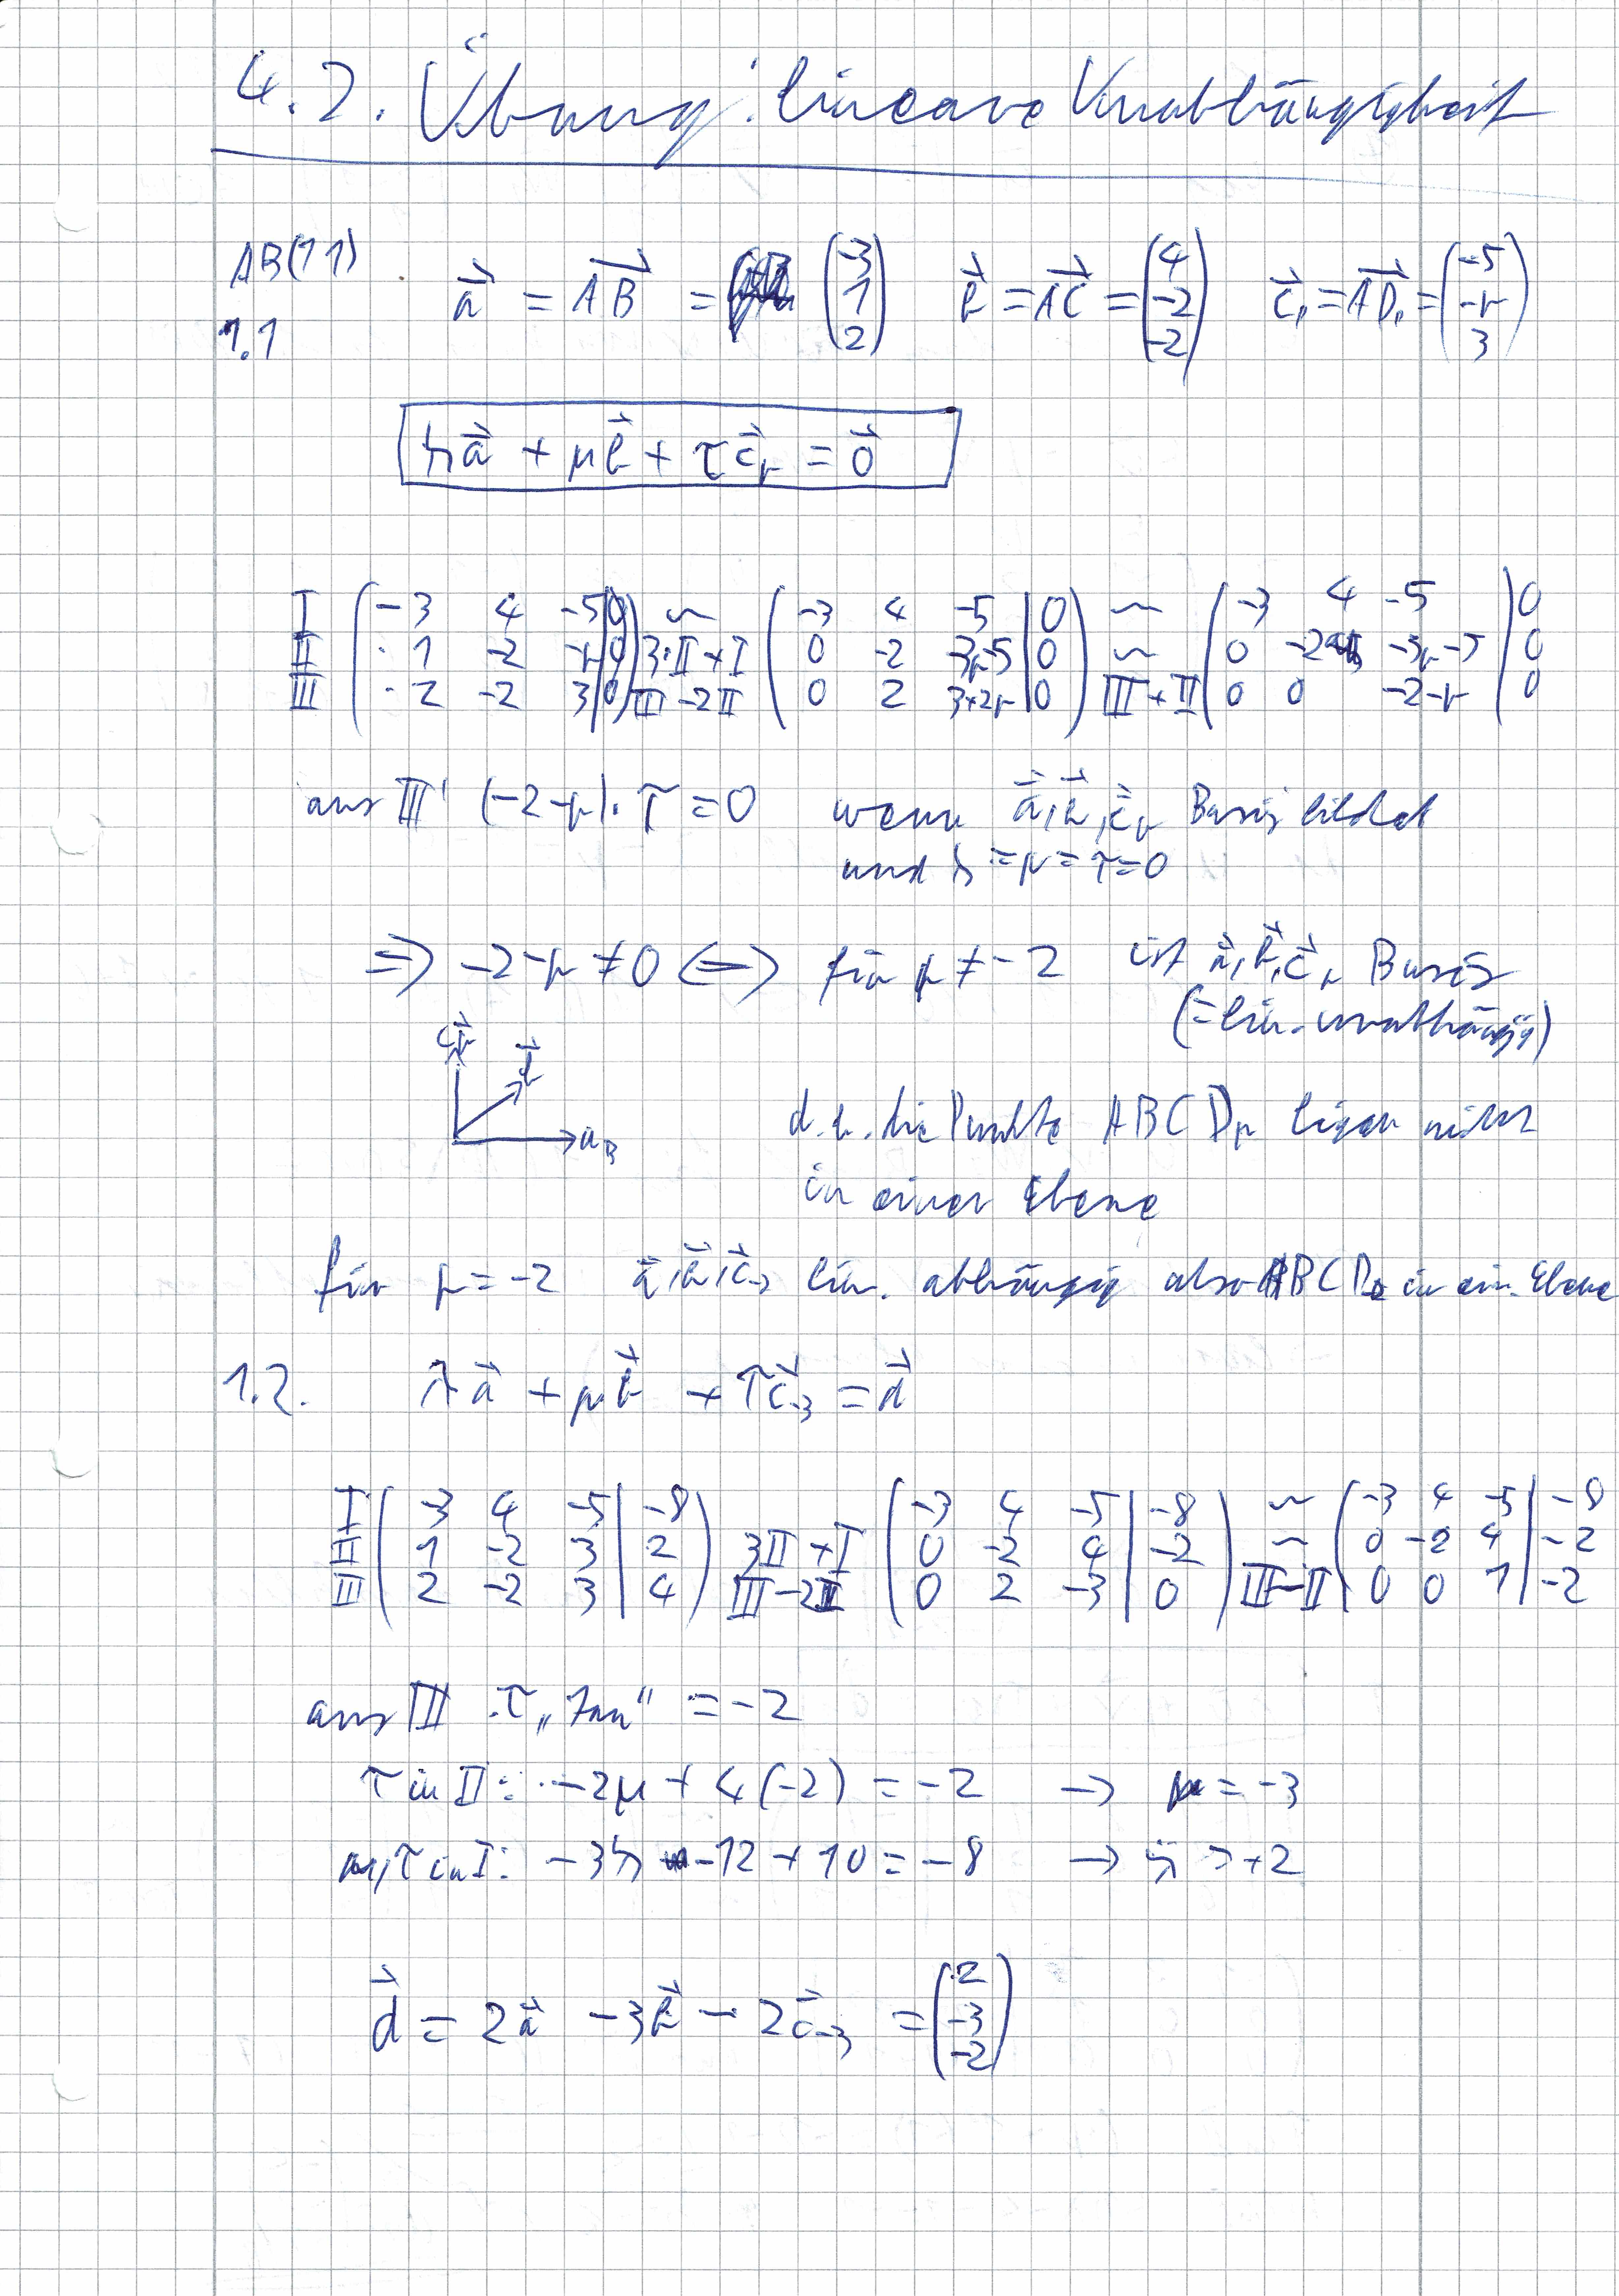 4.2. Übung: lineare Unabhängigkeit
AB(11)
1.1 a⃗ = AB⃗ = (-3 1 2) b⃗ = AC⃗ = (4 -2 -2) c⃗ᵣ = AD⃗ᵣ = (-5 -r 3)
λa⃗ + μb⃗ + τc⃗ᵣ = 0⃗
I ( -3 4 -5 | 0 ) ~ ( -3 4 -5 | 0 ) ~ ( -3 4 -5 | 0
II 1 -2 -r | 0 3·II+I 0 -2 -3r-5 | 0 ~ 0 -2 -3r-5 | 0
III 2 -2 3 | 0 III-2II 0 2 3+2r | 0 III+II 0 0 -2-r | 0
aus III' (-2-r)·τ = 0 wenn a⃗, b⃗, c⃗ᵣ Basis bildet
und λ = μ = τ = 0
⇒ -2-r ≠ 0 ⇔ für r ≠ -2 ist a⃗, b⃗, c⃗ᵣ Basis
(= lin. unabhängig)
c⃗ᵣ b⃗ a
d.h. die Punkte ABCDᵣ liegen nicht
in einer Ebene
für r = -2 a⃗, b⃗, c⃗₋₂ lin. abhängig also ABCD in ein. Ebene
1.2. λa⃗ + μb⃗ + τc⃗₋₃ = d⃗
I ( -3 4 -5 | -8 ) ( -3 4 -5 | -8 ) ~ ( -3 4 -5 | -8
II 1 -2 3 | 2 3II+I 0 -2 4 | -2 ~ 0 -2 4 | -2
III 2 -2 3 | 4 III-2II 0 2 -3 | 0 III-II 0 0 1 | -2
aus III τ „Tau" = -2
τ in II: -2μ + 4(-2) = -2 → μ = -3
μ, τ in I: -3λ -12 + 10 = -8 → λ = +2
d⃗ = 2a⃗ - 3b⃗ - 2c⃗₋₃ = (2 -3 -2)